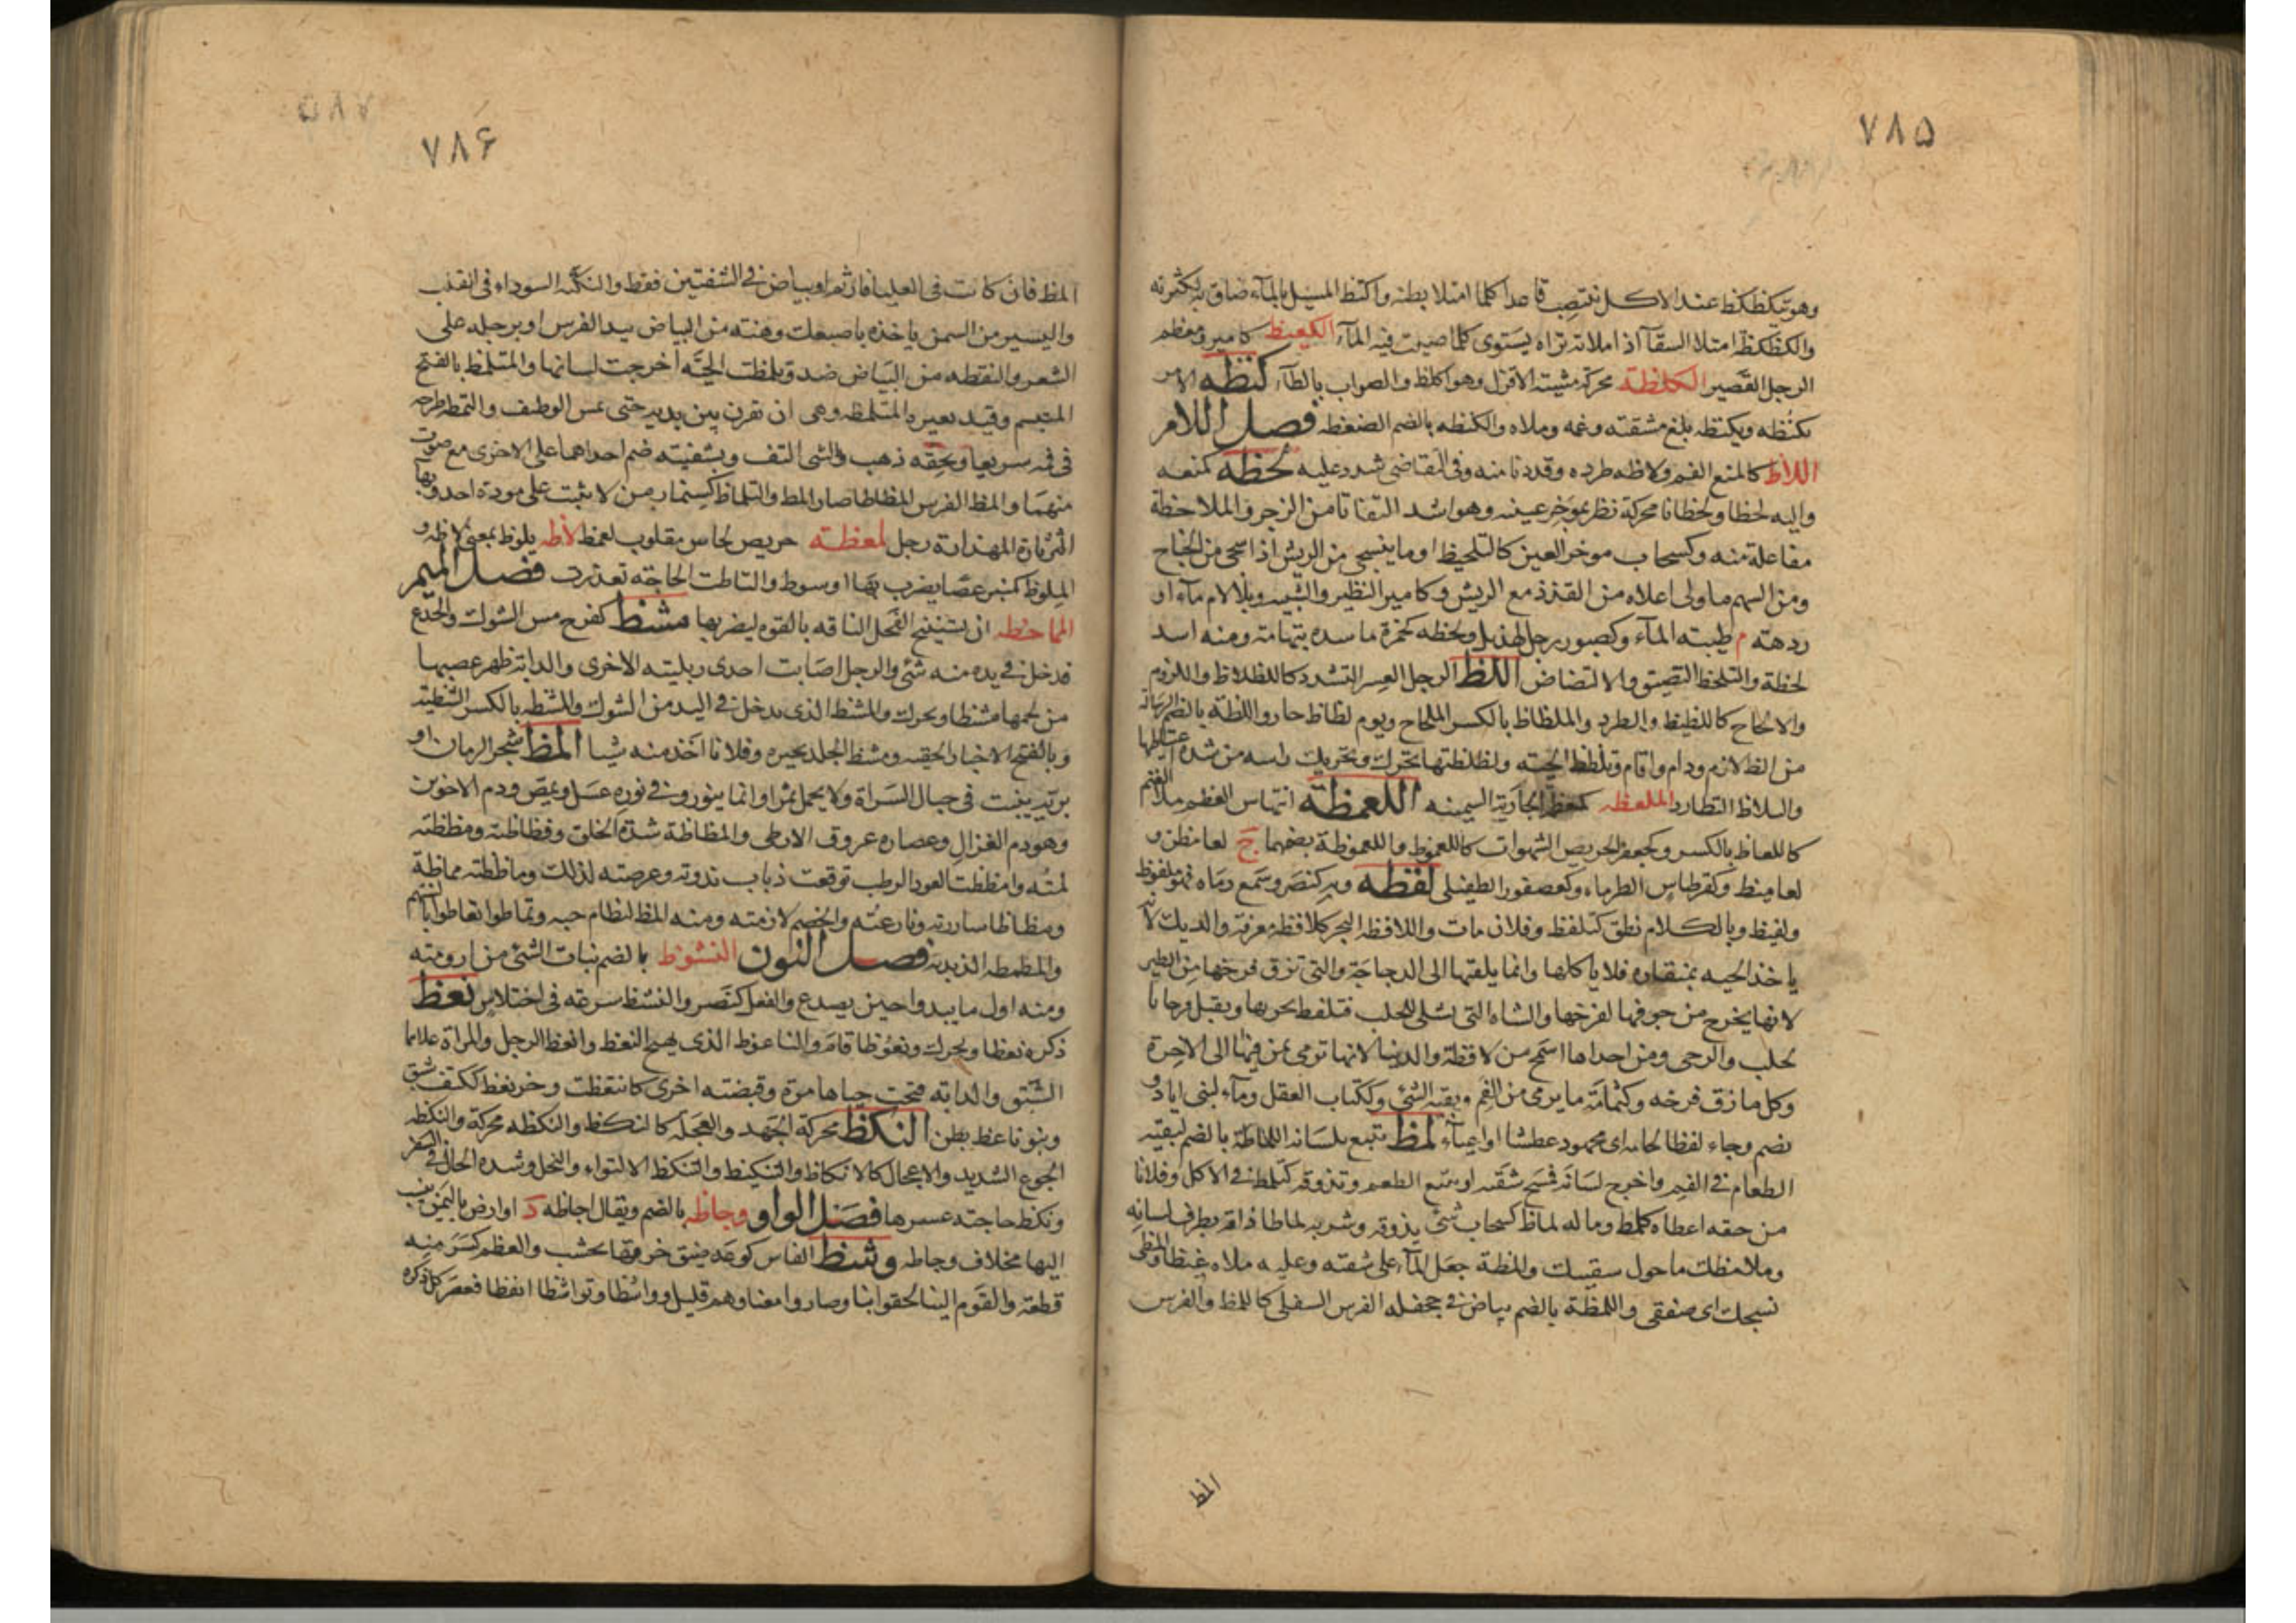 ٧٨٥
وهو يكظكظ عند الاكل ينتصب قاعدا كلما امتلا بطنه واكتظ المسيل بالمآء ضاق به لكثرته
والكظكظة امتلا السقآ اذا ملاته تراه يستوى كلما صببت فيه المآء الكعيظ كامير ومعظم
الرجل القصير الكلظة محركة مشية الاقزل وهو اكلظ والصواب بالطآء كنظه الامر
يكنظه ويكنظه بلغ مشقته وغمه وملاه والكنظه بالضم الضغطه فصل اللام
اللاظ كالمنع الغم ولاظه طرده وقد دنا منه وفى التقاضى شدد عليه لحظه كمنعه
واليه لحظا ولحظانا محركة نظر بموخر عينه وهو اشد التفاتا من الزجر والملاحظة
مفاعلة منه وكسحاب موخر العين كالتلحيظ او ما ينسحى من الريش اذا سحى من الجناح
ومن السهم ما ولى اعلاه من القذذ مع الريش وكامير النظير والشبيه وبلا لام مآء او
ردهة م طيبته المآء وكصبور رجل لهذيل ولحظه كحمزة ماسدة بتهامة ومنه اسد
لحظة والتلحظ التضيق والالتضاض اللظ الرجل العسر المتشدد كاللظلاظ واللزوم
والالحاح كاللظيظ والطرد والملظاظ بالكسر الملحاح ويوم لظاظ حار واللظة بالضم الرسالة
من الظ لازم ودام واقام وتلظلظ الحيته ولظلظتها تحرك وتحريك راسه من شدة اغتياظها
والتلاظ التطارد الملعظه كمعظم الجارية السمينه اللعمظه انتهاس العظم ملا الفم
كاللعماظ بالكسر وكجعفر الحريص الشهوان كاللعموظ واللعموظة بضمهما ج لعامظة و
لعاميظ وكقرطاس الطرماء وكعصفور الطفيلى لفظه وبه كضرب وسمع رماه فهو ملفوظ
ولفيظ وبالكلام نطق كتلفظ وفلان مات واللافظة البحر كلافظة معرفة والديك لانه
ياخذ الحبه بمنقاره فلا ياكلها وانما يلقيها الى الدجاجة والتى تزق فرخها من الطير
لانها يخرج من جوفها لفرخها والشاه التى تشلى للحلب فتلفظ بجرتها وتقبل فرحا بال
حلب والرحى ومن احداها اسمح من لافظة والدنيا لانها ترمى بمن فيها الى الاخرة
وكل ما زق فرخه وكثمامة ما يرمى من الفم وبقية الشئ وككتاب البقل ومآء لبنى اياد و
يضم وجاء لفظا لجامه اى مجهود عطشا او اعيآء لمظ تتبع بلسانه اللماظة بالضم لبقية
الطعام فى الفم واخرج لسانه فمسح شفته او تتبع الطعم وتذوقه كتلمظ فى الاكل وفلانا
من حقه اعطاه كلمظ وما له لماظ كسحاب شئ يذوقه وشربه لماظا ذاقه بطرف لسانه
وملامظك ما حول شفتيك والمظة جعل المآء على شفته وعليه ملاه غيظا والمظى
نسجك اى صفقى واللمظة بالضم بياض فى جحفلة الفرس السفلى كاللمظ والفرس
المظ
٧٨۶
المظ فان كانت فى العليا فارثم او بياض فى الشفتين فقط والنكتة السوداء فى القلب
واليسير من السمن ياخذه باصبعك وهنته من البياض بيد الفرس او برجله على
الشعر والنقطه من البياض ضد وتلمظت الحية اخرجت لسانها والمتلمظ بالفتح
المتبسم وقيد بعيره المتلمظه وهى ان تقرن بين يديه حتى يمس الوظيف والتمظه طرحه
فى فيه سريعا وبحقه ذهب والشى التف وبشفتيه ضم احداهما على الاخرى مع صوت
منهما والمظ الفرس المظاظا صار المظ والتلماظ كسنمار من لا يثبت على مودة احد وبها
الثرثارة المهذارة رجل لمعظة حريص لحاس مقلوب لعمظ لاظه يلوظ بمعنى لاظه و
الملوظ كمنبر عصا يضرب بها او سوط والتاظت الحاجته تعذرت فصل الميم
المماحظه ان يستنيخ الفحل الناقه بالقوم ليضربها مشظ كفرح مس الشوك والجذع
فدخل فى يده منه شئ والرجل اصابت احدى ربلتيه الاخرى والدابة ظهر عصبها
من لحمها مشظا ويحرك والمشظ الذى يدخل فى اليد من الشوك والمشظه بالكسر الشظية
وبالفتح الاخبار الخفيه ومشظ الجلد بحيره وفلانا اخذ منه شيا المظ شجر الرمان او
برية ينبت فى جبال السراة ولا يحمل ثمرا وانما ينور وفى نوره عسل ويمص ودم الاخوين
وهو دم الغزال وعصاره عروق الارطى والمظاظة شدة الخلق وفظاظته ومظظته
لمته وامظظت العود الرطب توقعت ذهاب ندوته وعرضته لذلك وماظظته مماظة
ومظاظا ساررته ونازعته والخصم لازمته ومنه المظ لنظام حبه وتماظوا تعاظوا بالسنتهم
والمظمظه الذبذبة فصل النون النشوظ بالضم نبات الشئ من ارومته
ومنه اول ما يبدوا حين يصدع والفعل كنصر والنشظ سرعه فى اختلاس نعظ
ذكره نعظا ويحرك ونعوظا قام والناعوظ الذى يهيج النعظ وانعظ الرجل والمراة علاهما
الشبق والدابه فتحت حياها مرة وقبضته اخرى كانتعظت وحر نعظ ككتف شبق
وبنو ناعظ بطن النكظ محركة الجهد والعجلة كالنكظ والنكظه محركة والنكظه
الجوع الشديد والاعجال كالانكاظ والتنكيظ والتنكظ الالتواء والبخل وشدة الحال فى السفر
ونكظ حاجته عسرها فصل الواو وجاظه بالضم ويقال اجاظه د او ارض باليمن ينسب
اليها مخلاف وجاظه وشظ الفاس كوعد ضيق خرقها بخشب والعظم كسر منه
قطعة والقوم الينا لحقوا بنا وصاروا معنا وهم قليل وواشظا وتواشظا انعظا فعصر كل ذكره